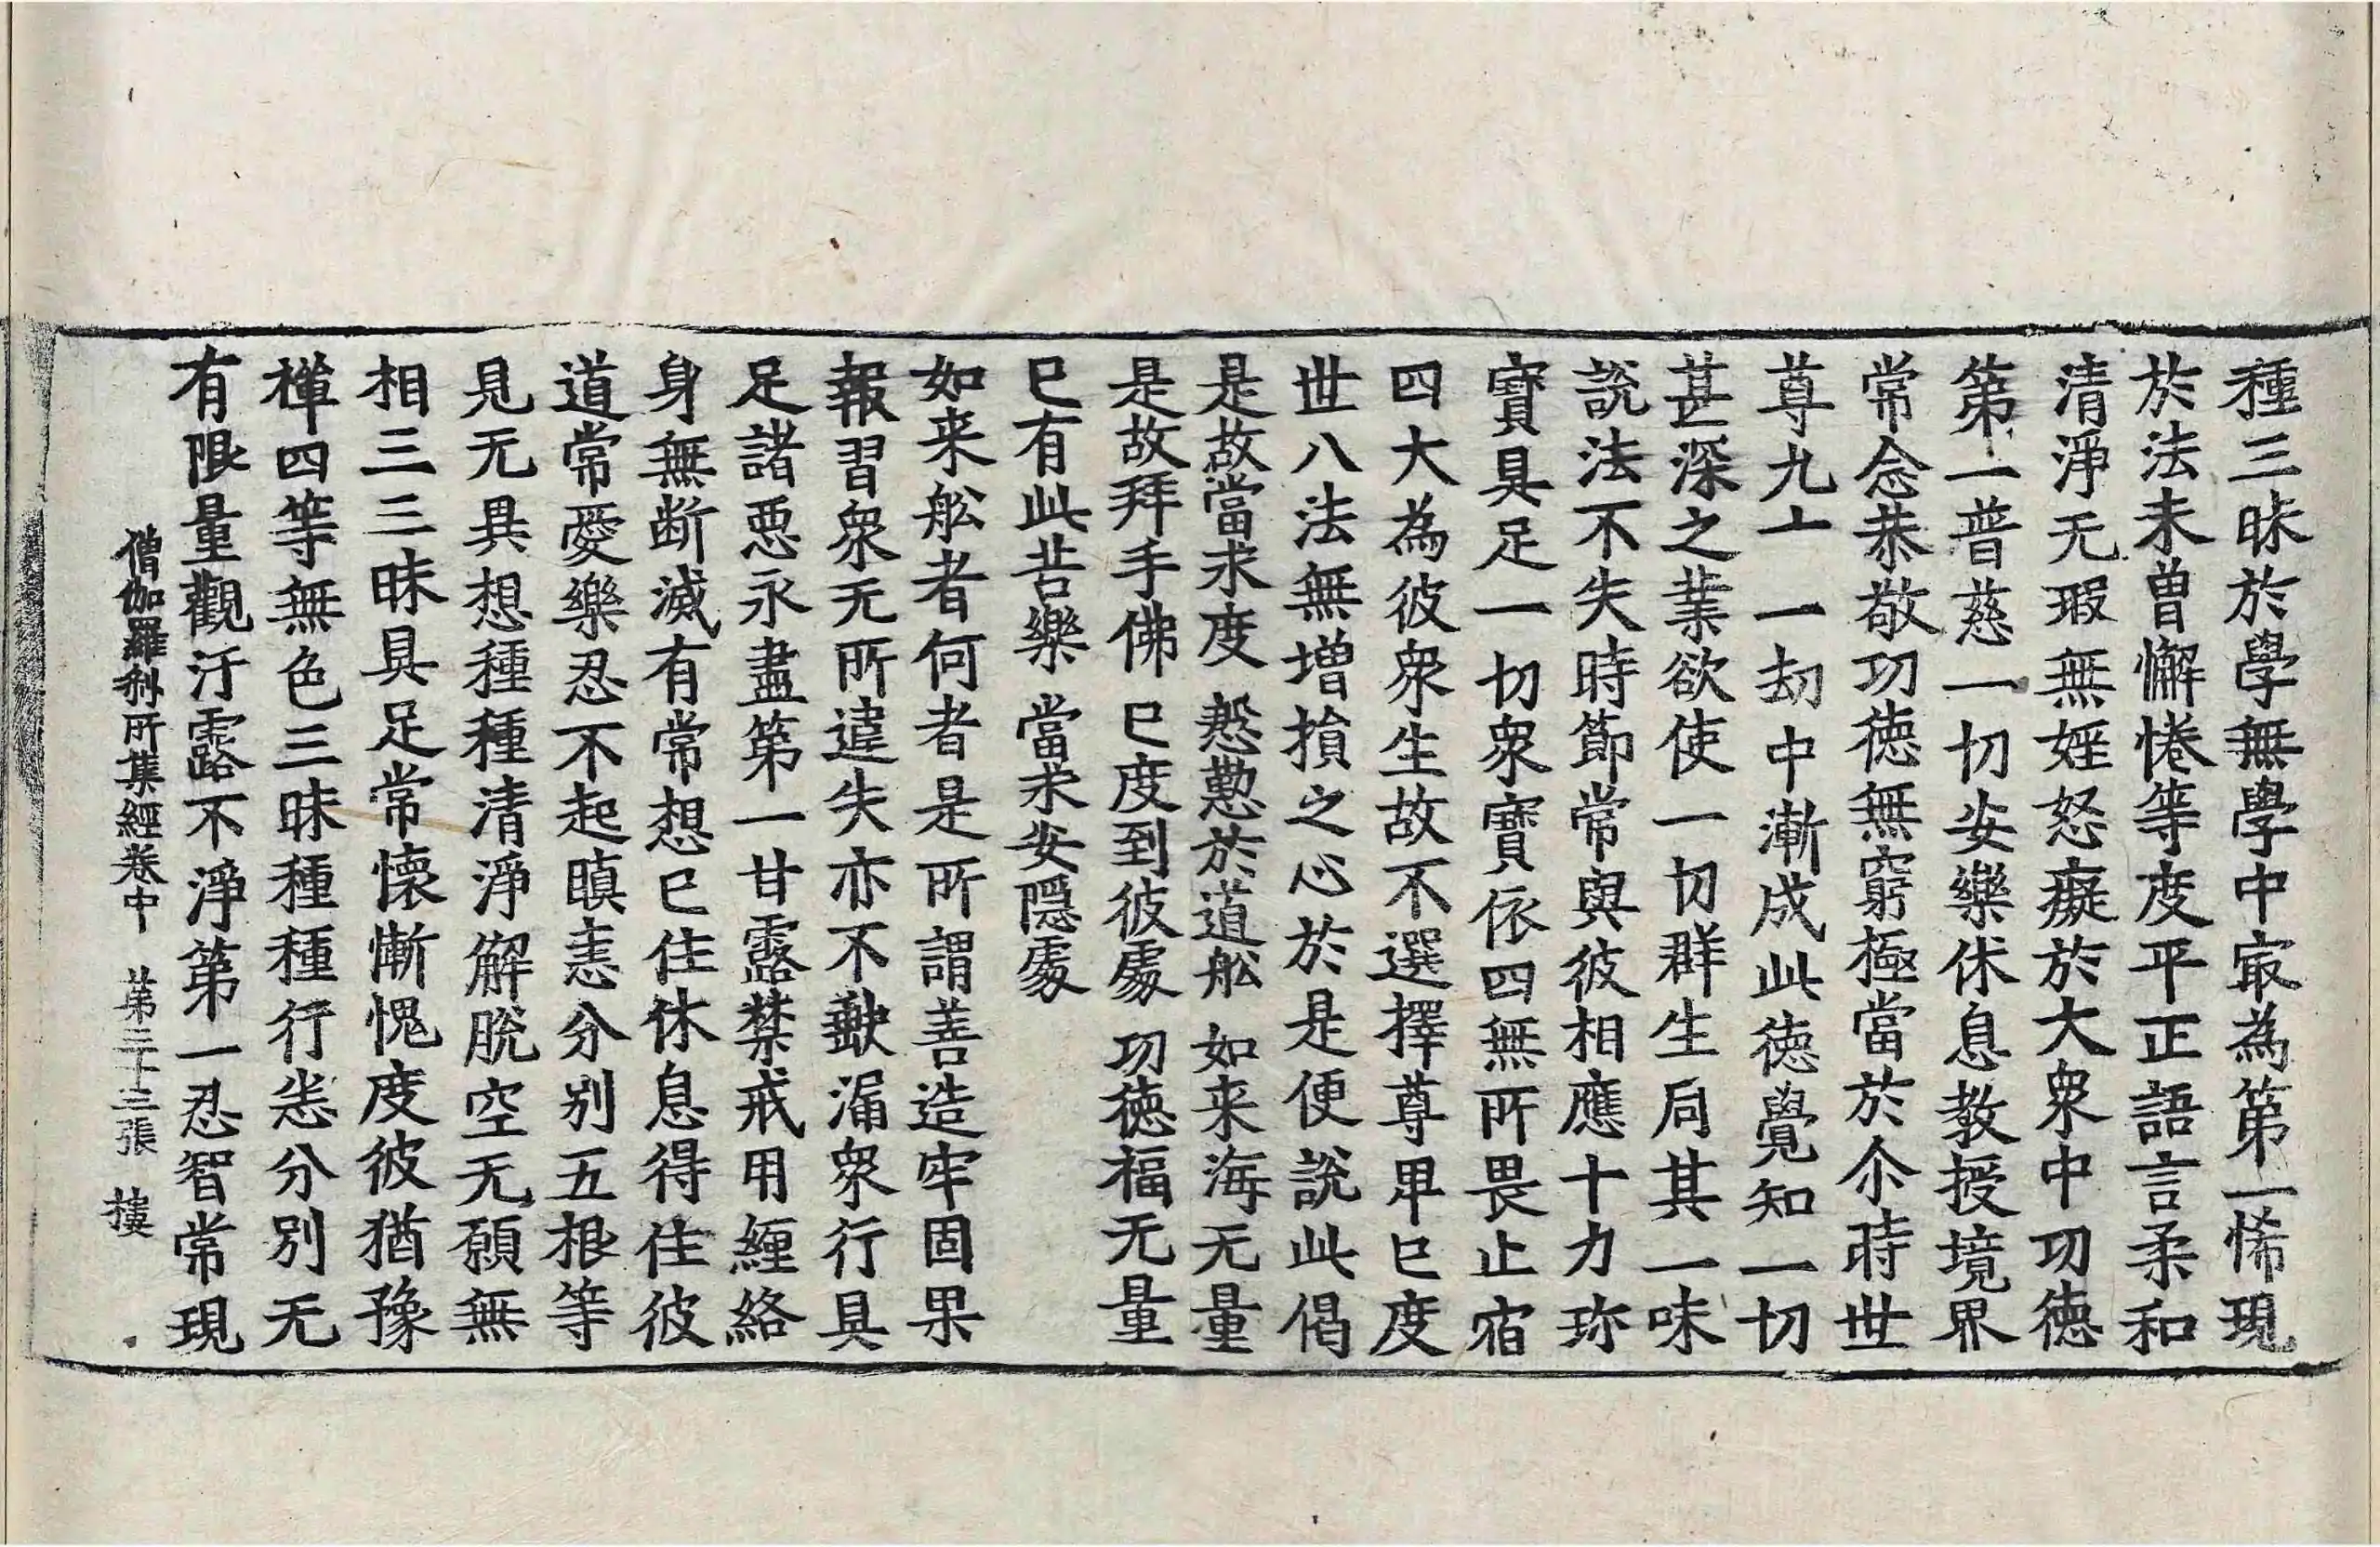 種三昧於學無學中㝡為第一悕現
於法未曾懈惓等度平正語言柔和
清淨无瑕無婬怒癡於大衆中功德
第一普慈一切安樂休息教授境界
常念恭敬功德無窮極當於尒時世
尊九十一劫中漸成此德覺知一切
甚深之業欲使一切群生同其一味
說法不失時節常與彼相應十力珎
寶具足一切衆寶依四無所畏止宿
四大為彼衆生故不選擇尊卑已度
世八法無增損之心於是便說此偈
是故當求度 慇懃於道舩 如来海无量
是故拜手佛 已度到彼處 功德福无量
已有此苦樂 當求安隱處
如来舩者何者是所謂善造牢固果
報習衆无所違失亦不歠漏衆行具
足諸惡永盡第一甘露禁戒用纏絡
身無断滅有常想已住休息得住彼
道常愛樂忍不起瞋恚分別五根等
見无異想種種清淨解脫空无願無
相三三昧具足常懷慚愧度彼猶豫
禪四等無色三昧種種行恙分別无
有限量觀汙露不淨第一忍智常現
僧伽羅刹所集經卷中 第三十三張 摟